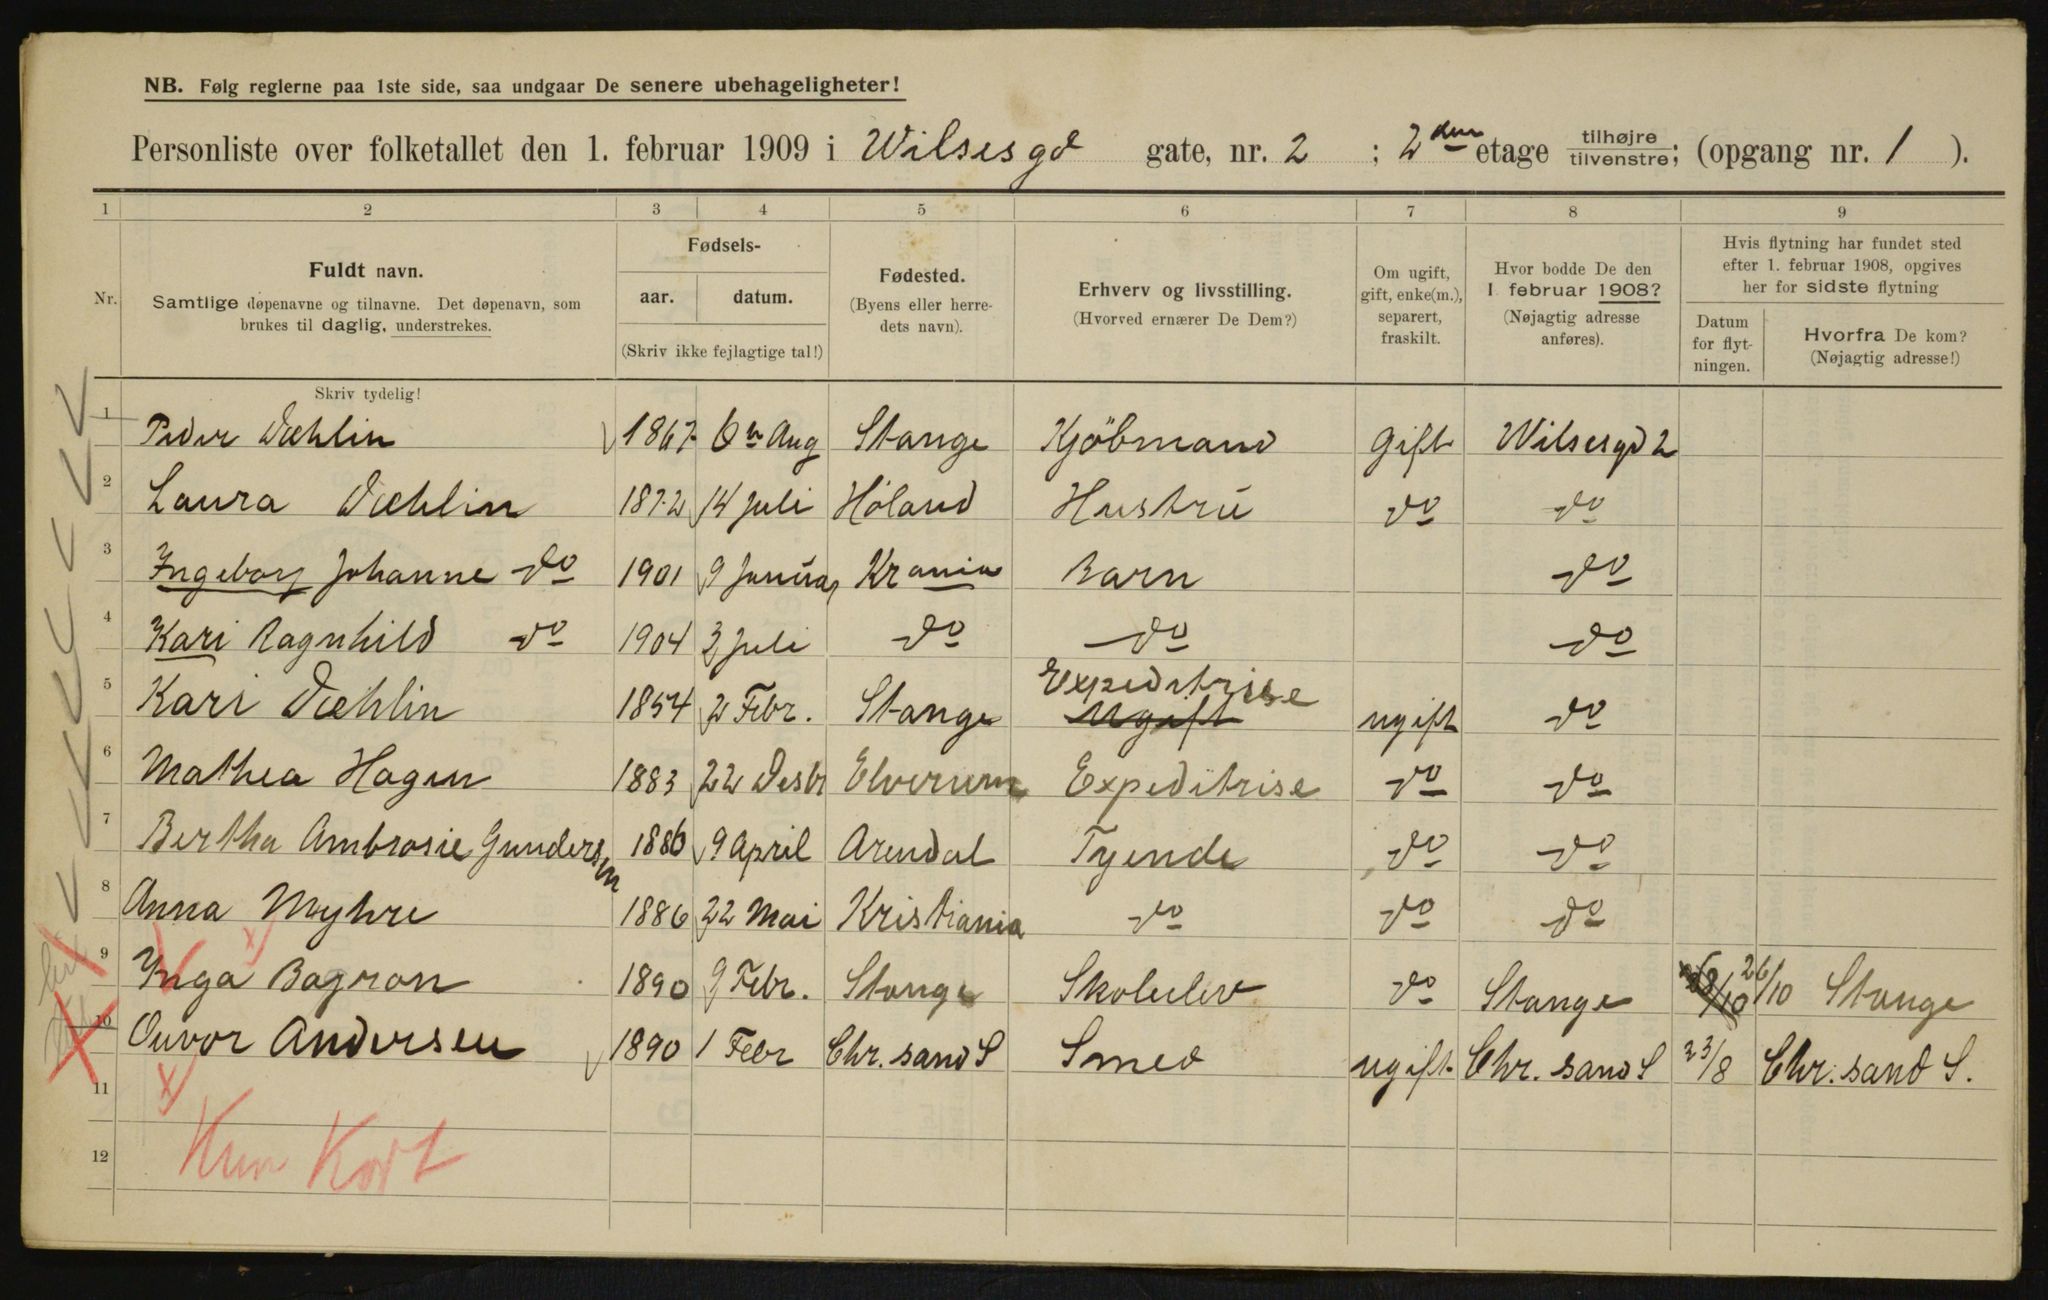 NB. Følg reglerne paa 1ste side, saa undgaar De senere ubehageligheter!
Personliste over folketallet den 1. februar 1909 i Wilsesgd gate, nr. 2 ; 2den etage tilhøjre tilvenstre; (opgang nr. 1 ).
1 2 3 4 5 6 7 8 9
Nr.
Fuldt navn.
Samtlige døpenavne og tilnavne. Det døpenavn, som
brukes til daglig, understrekes.
Fødsels-
aar. datum.
(Skriv ikke fejlagtige tal!)
Fødested.
(Byens eller herre-
dets navn).
Erhverv og livsstilling.
(Hvorved ernærer De Dem?)
Om ugift,
gift, enke(m.),
separert,
fraskilt.
Hvor bodde De den
1 februar 1908?
(Nøjagtig adresse
anføres).
Hvis flytning har fundet sted
efter 1. februar 1908, opgives
her for sidste flytning
Datum
for flyt-
ningen.
Hvorfra De kom?
(Nøjagtig adresse!)
Skriv tydelig!
1 Peder Dæhlin 1867 6te Aug Stange Kjöbmand Gift Wilsesgd 2
2 Laura Dæhlin 1872 14 Juli Höland Hustru do do
3 Ingeborg Johanne do 1901 9 Januar Krania Barn do
4 Kari Ragnhild do 1904 3 Juli do do do
5 Kari Dæhlin 1854 2 Febr. Stange Ugift Expeditrise ugift do
6 Mathea Hagen 1883 22 Desbr Elverum Expeditrise do do
7 Bertha Ambrosie Gundersen 1886 9 April Arendal Tyende do do
8 Anna Myhre 1886 22 Mai Kristiania do do do
9 Inga Bagron 1890 9 Febr. Stange Skoleelev do Stange 26/10 Stange
10 Ouvor Andersen 1890 1 Febr Chr. sand S Smed ugift Chr. sand S 23/8 Chr. sand S.
11
12
Kun Kort